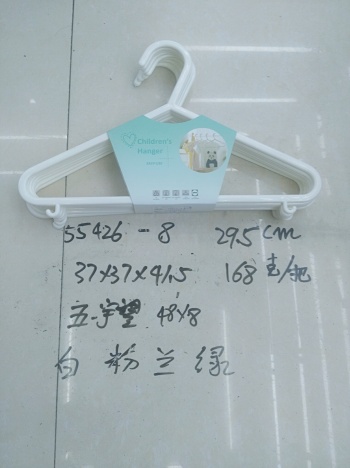 Children's
Hanger
55426-8 29.5cm
37×37×41.5 168克/把
48×8
白 粉 兰 绿